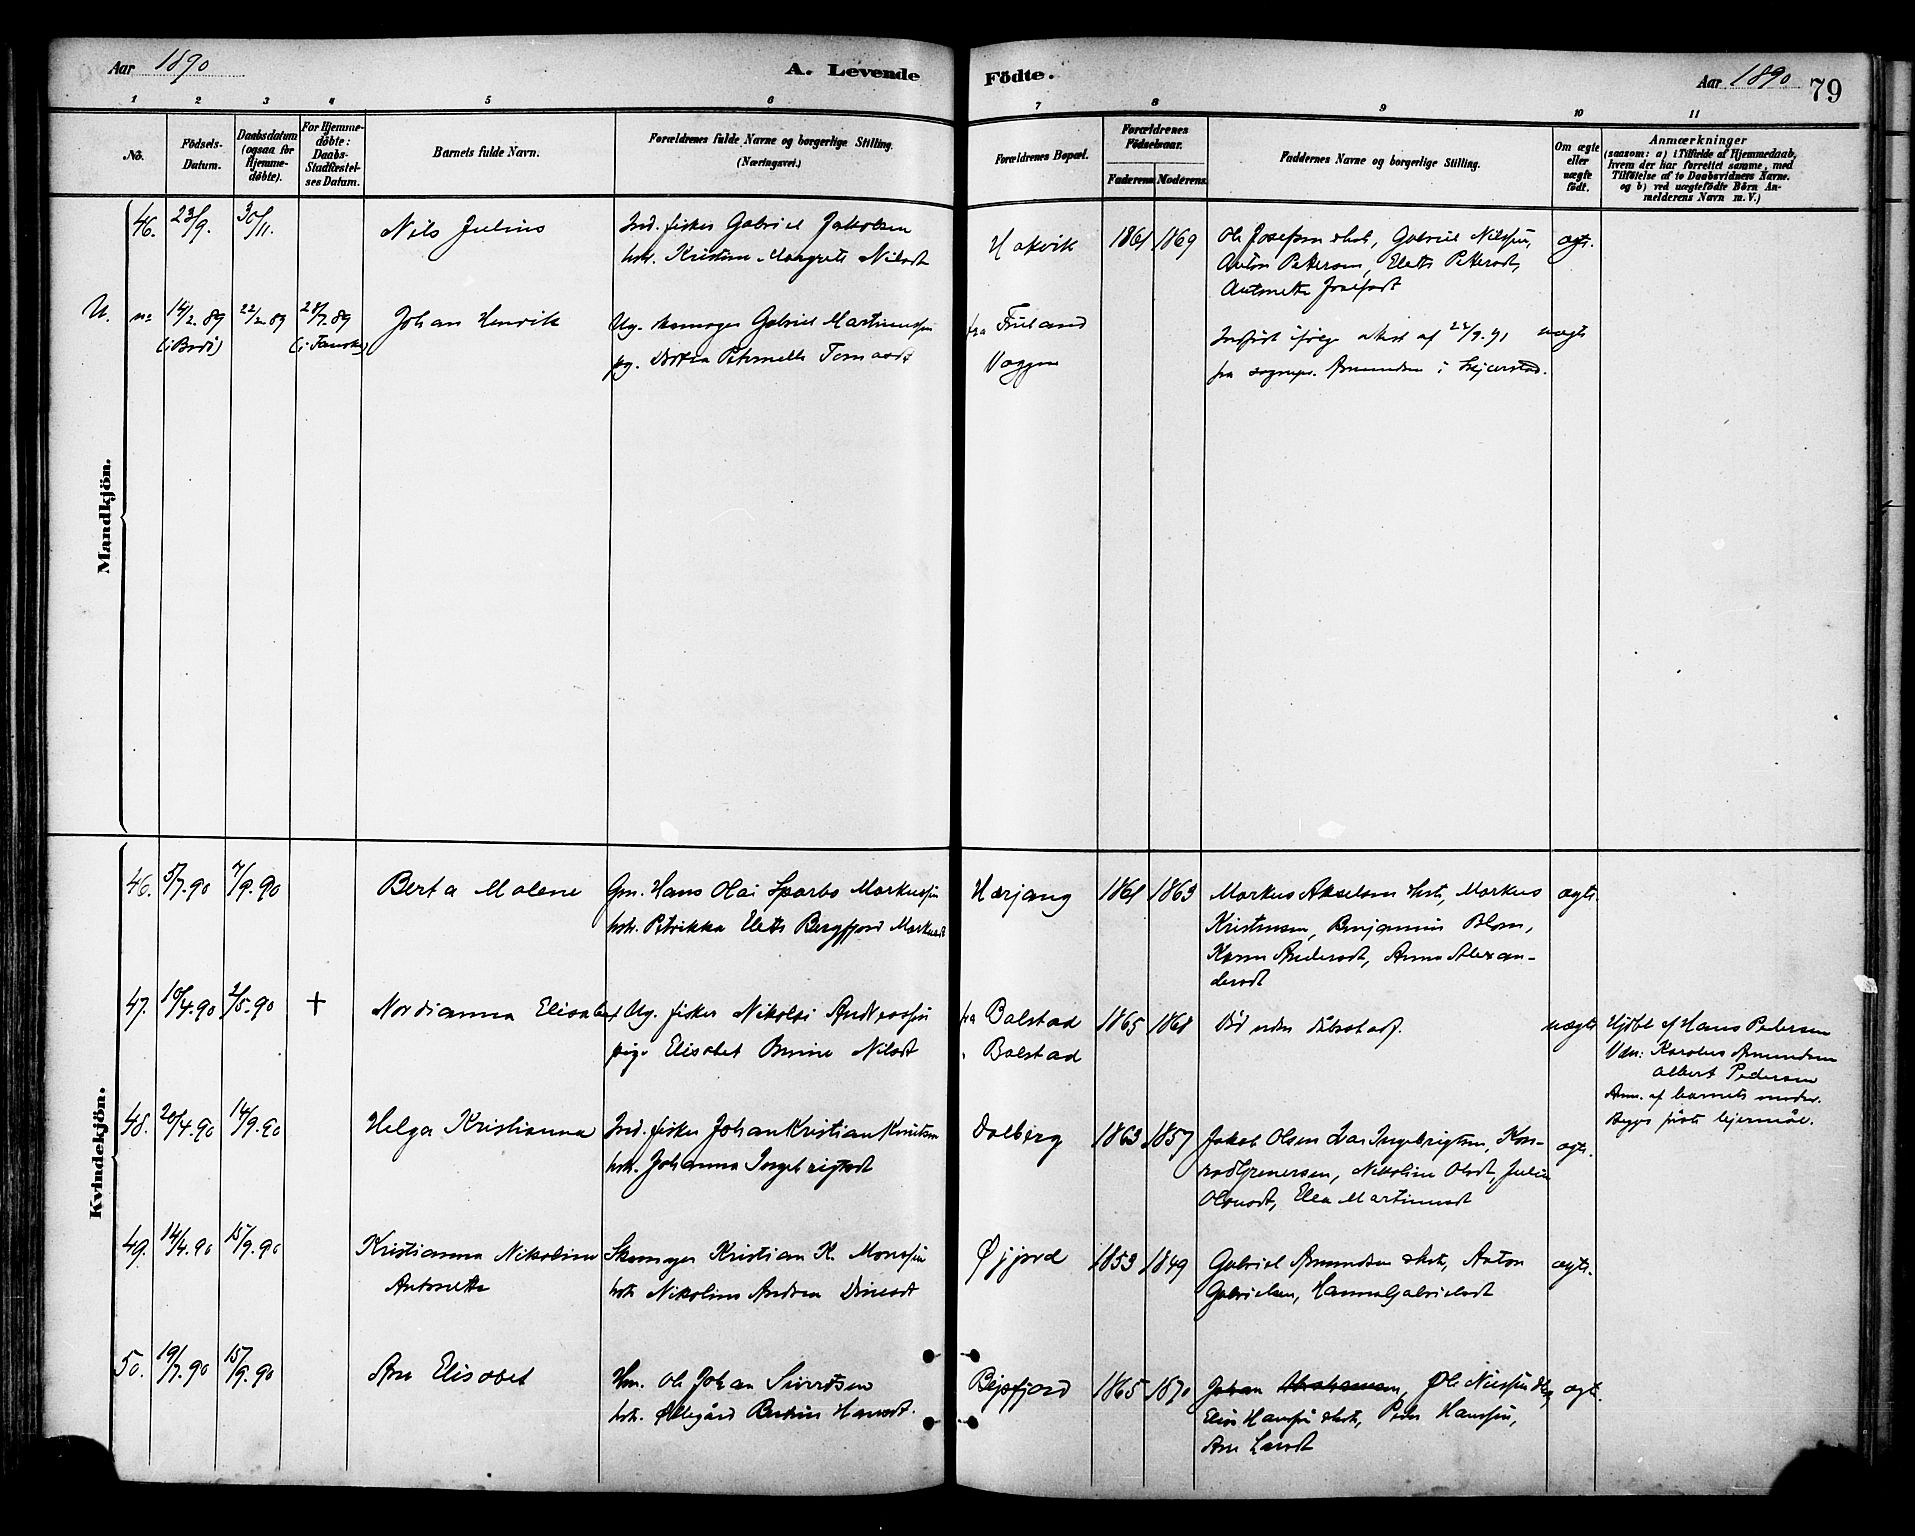 Aar 1890
A. Levende
Födte.
Aar 1890
79
1 2 3 4 5 6 7 8 9 10 11
No.
Födsels-
Datum.
Daabsdatum
(ogsaa for
Hjemme-
döbte).
For Hjemme-
döbte:
Daabs-
Stadfæstel-
ses Datum.
Barnets fulde Navn.
Forældrenes fulde Navne og borgerlige Stilling.
(Næringsvei.)
Forældrenes Bopæl.
Forældrenes
Födselsaar.
Faderens. Moderens.
Faddernes Navne og borgerlige Stilling.
Om ægte
eller
uægte
födt.
Anmærkninger
(saasom: a) i Tilfælde af Hjemmedaab,
hvem der har forrettet samme, med
Tilföielse af to Daabsvidners Navne.
og b) ved uægtefödte Börn An-
melderens Navn m. V.)
Mandkjön.
46. 23/9. 30/11.
Nils Julius
Ind. fisker Gabriel Jakobsen
hstr. Kristine Margrete Nilsdt
Hakvik
1861 1869
Ole Josefsen & hst, Gabriel Nilssøn,
Anton Petersen, Elette Petersdt,
Antonette Josefsdt
ægte.
U. 14/2.89 22/2.89 28/7.89
(i Bodø)
Johan Henrik
Ug. skomager Gabriel Martinussøn
pg. Peternelle Tomasdt
fra
Indført ifølge attest af 22/9.91
fra sognepr. Amundsen i Skjerstad.
uægte
Kvindekjön.
46. 5/7.90 7/9.90
Berta Malene
Gm. Hans Olai Sparbo Markussøn
hstr. Petrikka Elette Bergfjord Markusdt
Herjang
1861 1863
Markus Akselsen & hst, Markus
Kristensen, Benjamin Blom,
Karen Andersdt, Anna Alexan-
dersdt
ægte.
47. 10/4.90 2/5.90 +
Nordianna Elisabet
Ug. fisker Nikolai Andreassøn
pige Elisabet Nilsdt
fra Balstad
" Balstad
1865 1868
Død uden
uægte
Hjdbt af Hans Pedersen
Vidn: Karolus Amundsen
Albert Pedersen
Anm. af barnets moder.
Begges første leiermål.
48. 20/4.90 14/9.90
Helga Kristianna
Ind. fisker Johan Kristian Knutsen
hstr. Johanna Ingebrigtsdt
Dalberg
1863 1857
Jakob Olsen, Lars Ingebrigtsen, Kon-
rad Grenersen, Nikoline Olsdt, Julie
Olsdt, Elea Martinusdt
ægte.
49. 14/4.90 15/9.90
Kristianna Nikoline
Antonette
Skomager Kristian K. Monssøn
hstr. Nikoline Andrea
Øyjord
1853 1849
Gabriel Amundsen & hst, Anton
Gabrielsen, Hanna Gabrielsdt
ægte.
50. 19/7.90 15/9.90
Ane Elisabet
Hm. Ole Johan Sivertsen
hstr. Øllegård Hansdt.
Beisfjord
1865 1870
Johan Abrahamsen, Ole Nilssøn & hst,
Elias Hanssøn & hst, Peder Hanssøn,
Ane Larsdt
ægt.